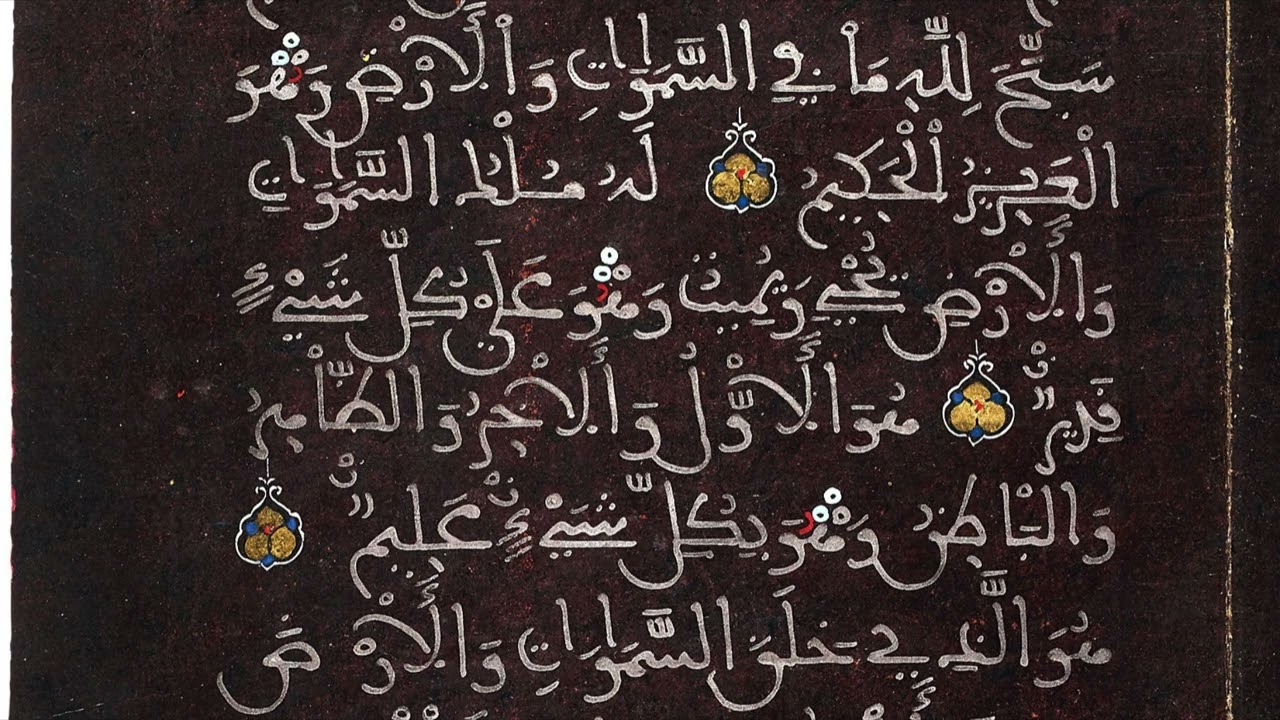 سَبَّحَ لِلَّهِ مَا فِي السَّمَوَاتِ وَالْأَرْضِ وَهُوَ
الْعَزِيزُ الْحَكِيمُ لَهُ مُلْكُ السَّمَوَاتِ
وَالْأَرْضِ يُحْيِي وَيُمِيتُ وَهُوَ عَلَى كُلِّ شَيْءٍ
قَدِيرٌ هُوَ الْأَوَّلُ وَالْآخِرُ وَالظَّاهِرُ
وَالْبَاطِنُ وَهُوَ بِكُلِّ شَيْءٍ عَلِيمٌ
هُوَ الَّذِي خَلَقَ السَّمَوَاتِ وَالْأَرْضَ